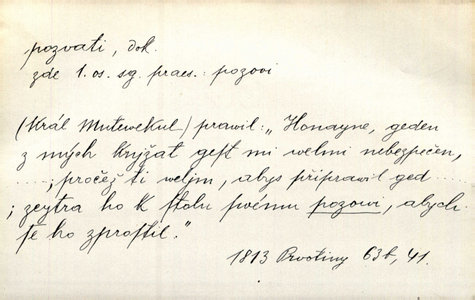 pozvati, dok.
zde 1. os. sg. praes.: pozovi
(Král Mutewekul) prawil: „Honayne, geden
z mých knjžat gest mi welmi nebezpečen,
.....; pročež ti welјm, abys připrawil ged .....
; zeytra ho k stolu swému pozovi, abych
se ho zprostil."
1813 Prvotiny 63b, 41.